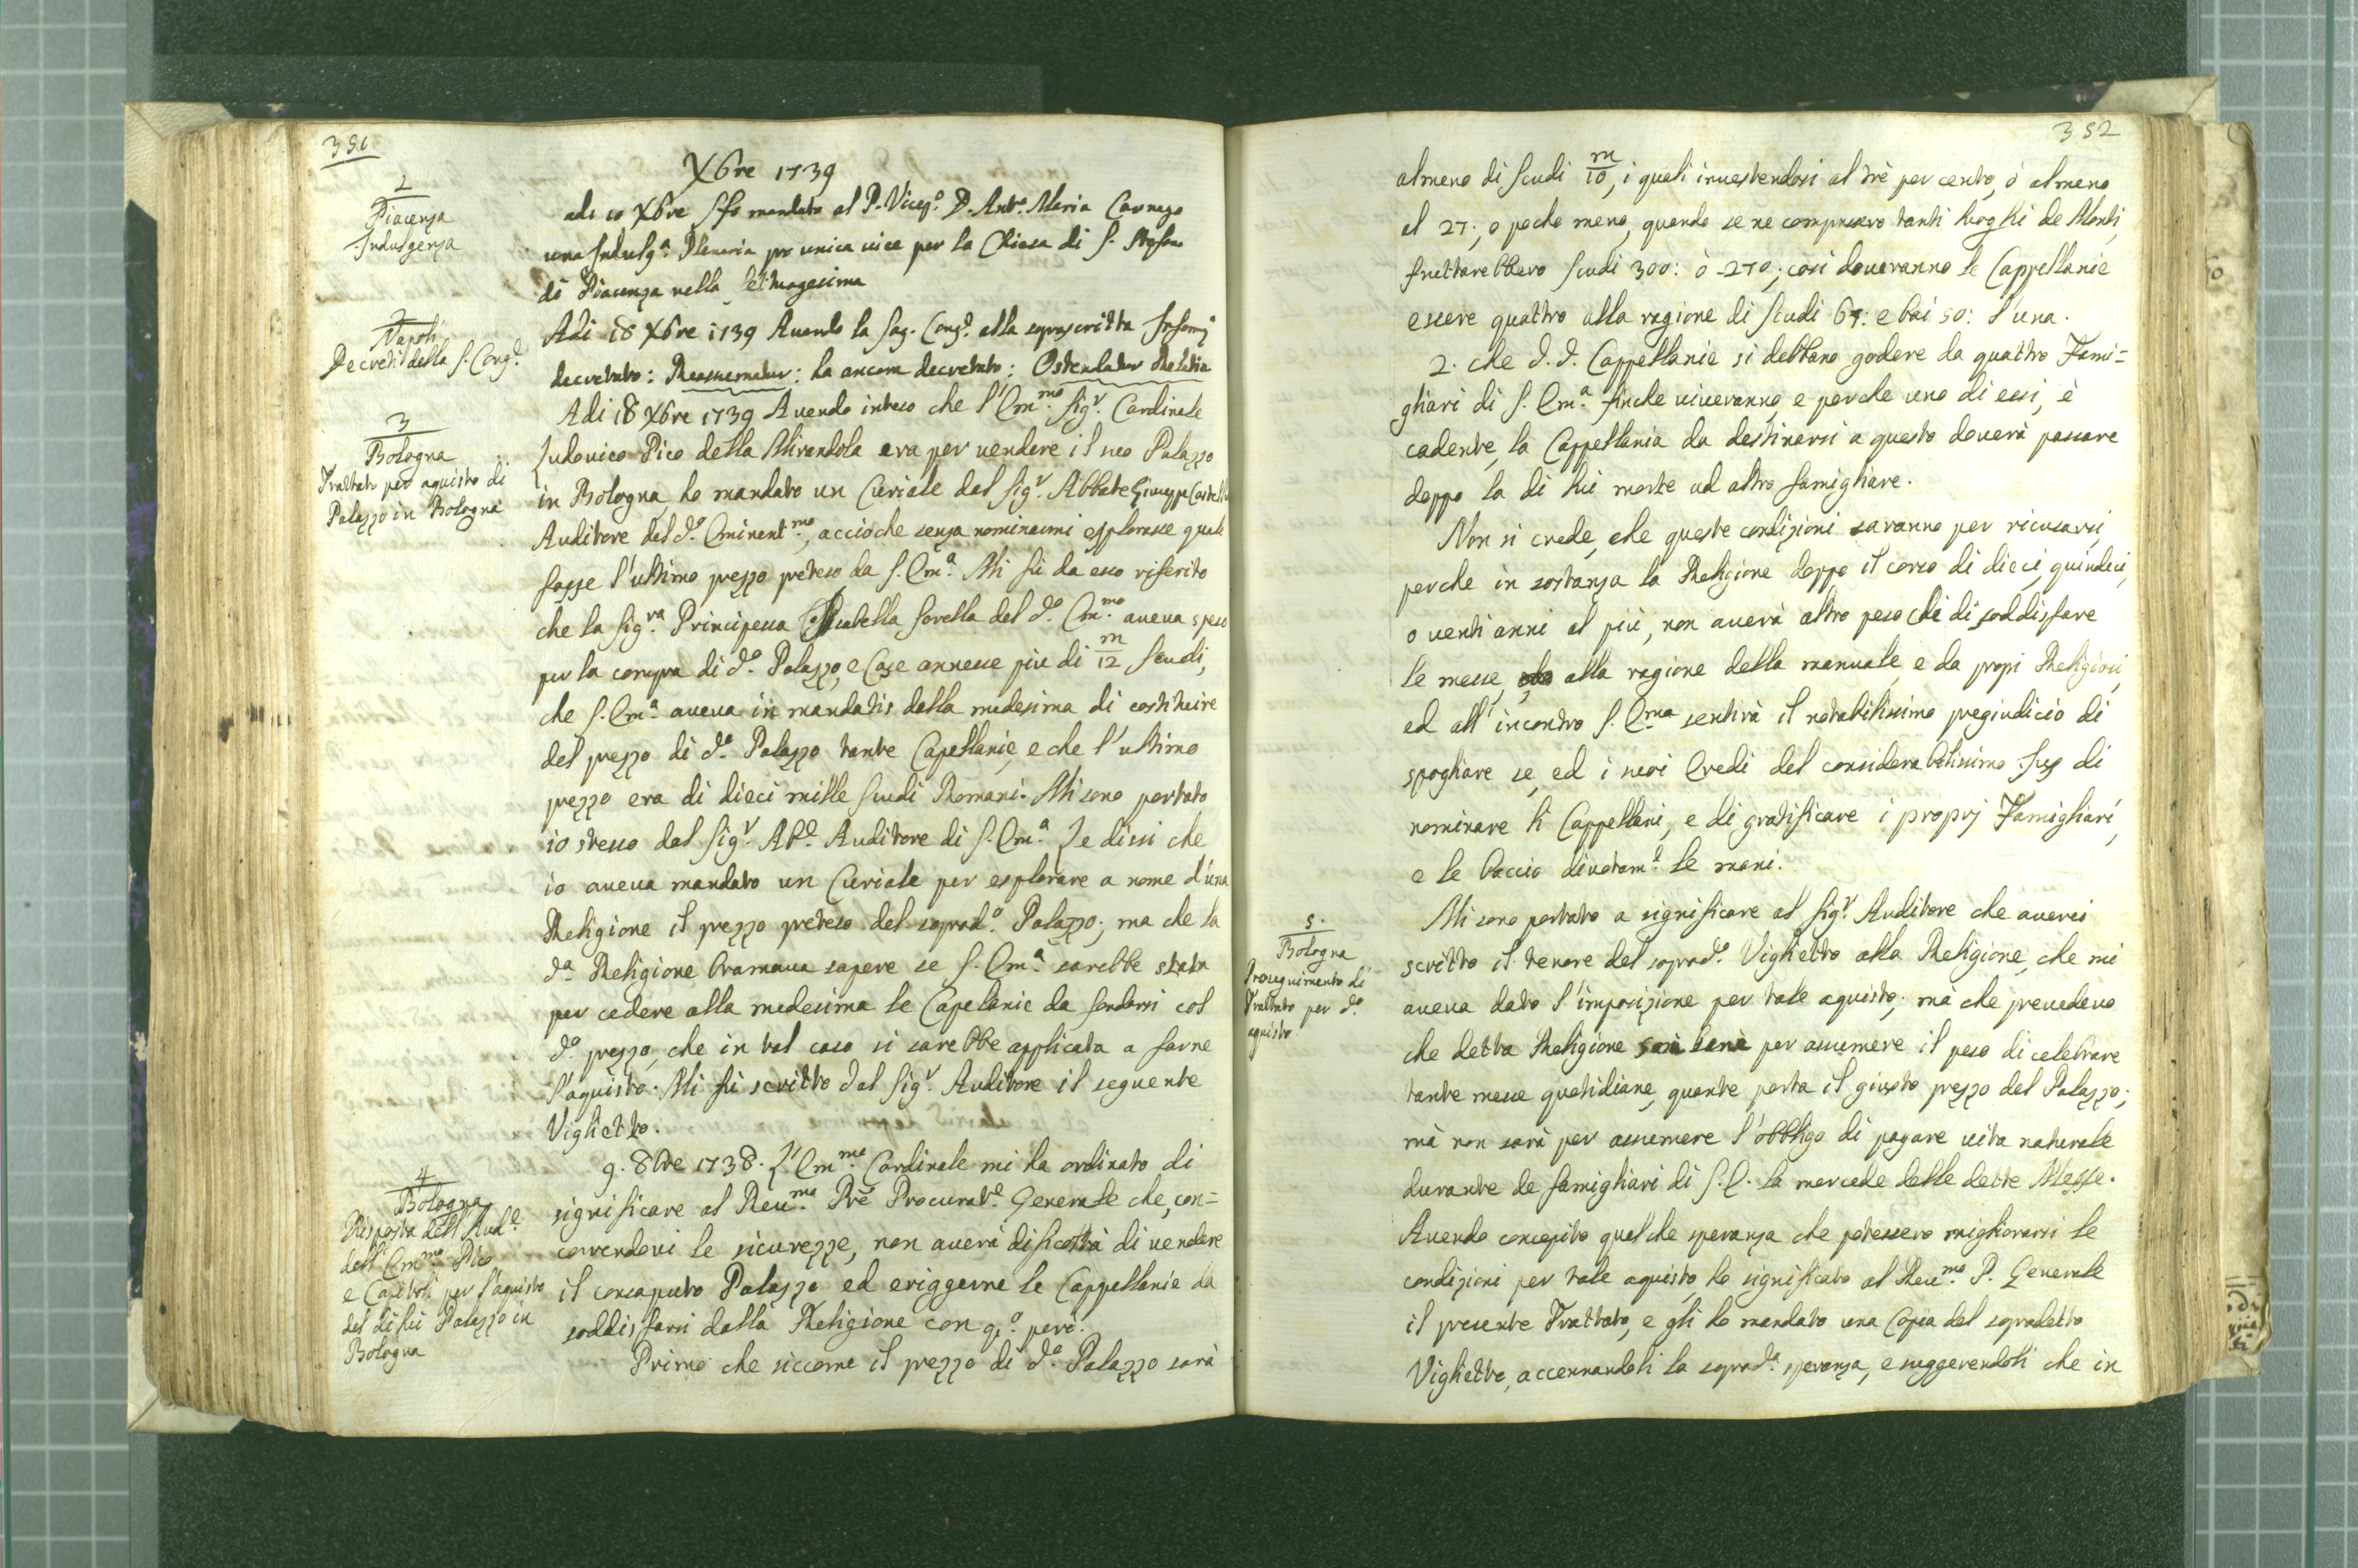 351
Xbre 1739
1
Piacenza
Indulgenza
adi 10 Xbre s'è mandato al P. Vicep.º D. Ant.º Maria
una Indulg.ª Plenaria pro unica vice per la Chiesa di S.
di Piacenza nella Settuagesima
2
Napoli
Decreti della S. Cong.e
Adi 18 Xbre 1739 Avendo la Sag. Cong.e alla soprascritta
decretato: Reassumatur: ha ancora decretato: Ostendatur
3
Bologna
Trattato per aquisto di
Palazzo in Bologna
Adi 18 Xbre 1739 Avendo inteso che l'Em.mo Sig.r Cardinale
Ludovico Pico della Mirandola era per vendere il suo Palazzo
in Bologna, ho mandato un Curiale dal Sig.r Abbate Giuseppe
Auditore del d.º Eminent.mo, accioche senza nominarmi esplorasse quale
fosse l'ultimo prezzo preteso da S. Em.ª Mi fù da esso riferito
che la Sig.ra Principessa Isabella Sorella del d.º Em.mo aveva speso
per la compra di d.º Palazzo, e Case annesse più di m/12 Scudi,
che S. Em.ª aveva in mandatis della medesima di costituire
del prezzo di d.º Palazzo tante Capellanie, e che l'ultimo
prezzo era di dieci mille Scudi Romani. Mi sono portato
io stesso dal Sig.r Ab.e Auditore di S. Em.ª Le dissi che
io aveva mandato un Curiale per esplorare a nome d'una
Religione il prezzo preteso del soprad.º Palazzo; ma che la
d.ª Religione bramava sapere se S. Em.ª sarebbe stata
per cedere alla medesima le Capelanie da fondarsi col
d.º prezzo, che in tal caso si sarebbe applicata a farne
l'aquisto. Mi fù scritto dal Sig.r Auditore il seguente
Viglietto.
4
Bologna
Risposta dell'Aud.e
dell'Em.mo Pico
e Capitoli per l'aquisto
del di lui Palazzo in
Bologna
9. 8bre 1738. L'Em.mo Cardinale mi ha ordinato di
significare al Reu.mo Prē Procurat.e Generale che, con=
correndovi le sicurezze, non averà dificoltà di vendere
il consaputo Palazzo ed eriggerne le Cappellanie da
soddisfarsi dalla Religione con q.º però.
Primo che siccome il prezzo di d.º Palazzo sarà
352
almeno di Scudi m/10, i quali investendosi al trè per cento, ò almeno
al 27; o poche meno, quando se ne comprasero tanti luoghi de Monti,
fruttarebbero Scudi 300: ò 270; così doveranno le Cappellanie
essere quattro alla ragione di Scudi 67: e bai 50: l'una.
2. che d.d. Cappellanie si debbano godere da quattro Fami=
gliari di S. Em.ª finche viveranno, e perche uno di essi, è
cadente, la Cappellania da destinarsi a questo doverà passare
doppo la di lui morte ad altro famigliare.
Non si crede, che queste condizioni saranno per ricusarsi,
perche in sostanza la Religione doppo il corso di dieci, quindeci,
o venti anni al più, non averà altro peso che di soddisfare
le messe, alla ragione della manuale, e da propi Religiosi,
ed all'incontro S. Em.ma sentirà il notabilissimo pregiudicio di
spogliare se, ed i suoi Eredi del considerabilissimo Jus di
nominare li Cappellani, e di gratificare i proprj Famigliari,
e le baccio divotam.e le mani.
5.
Bologna
Proseguimento di
Trattato per d.º
aquisto
Mi sono portato a significare al Sig.r Auditore che averei
scritto il tenore del soprad.º Viglietto alla Religione, che mi
aveva dato l'imposizione per tale aquisto; mà che prevedevo
che detta Religione sarà per assumere il peso di celebrare
tante messe quotidiane, quante porta il giusto prezzo del Palazzo;
mà non sarà per assumere l'obbligo di pagare vita naturale
durante de famigliari di S.E. la mercede delle dette Messe.
Avendo concepito qualche speranza che potessero migliorarsi le
condizioni per tale aquisto, ho significato al Reu.mo P. Generale
il presente Trattato, e gli ho mandato una Copia del sopradetto
Viglietto, accennandoli la soprad.ª speranza, e suggerendoli che in